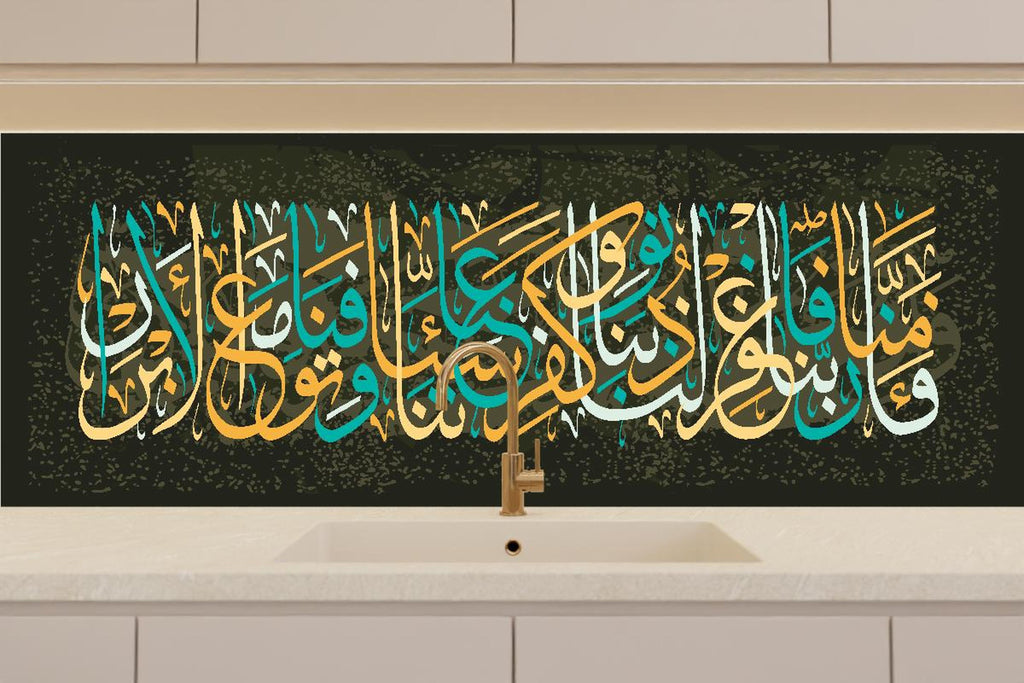 فـٔامنا ربنا فاغفر لنا ذنوبنا وكفر عنا سيئاتنا وتوفنا مع الأبرار